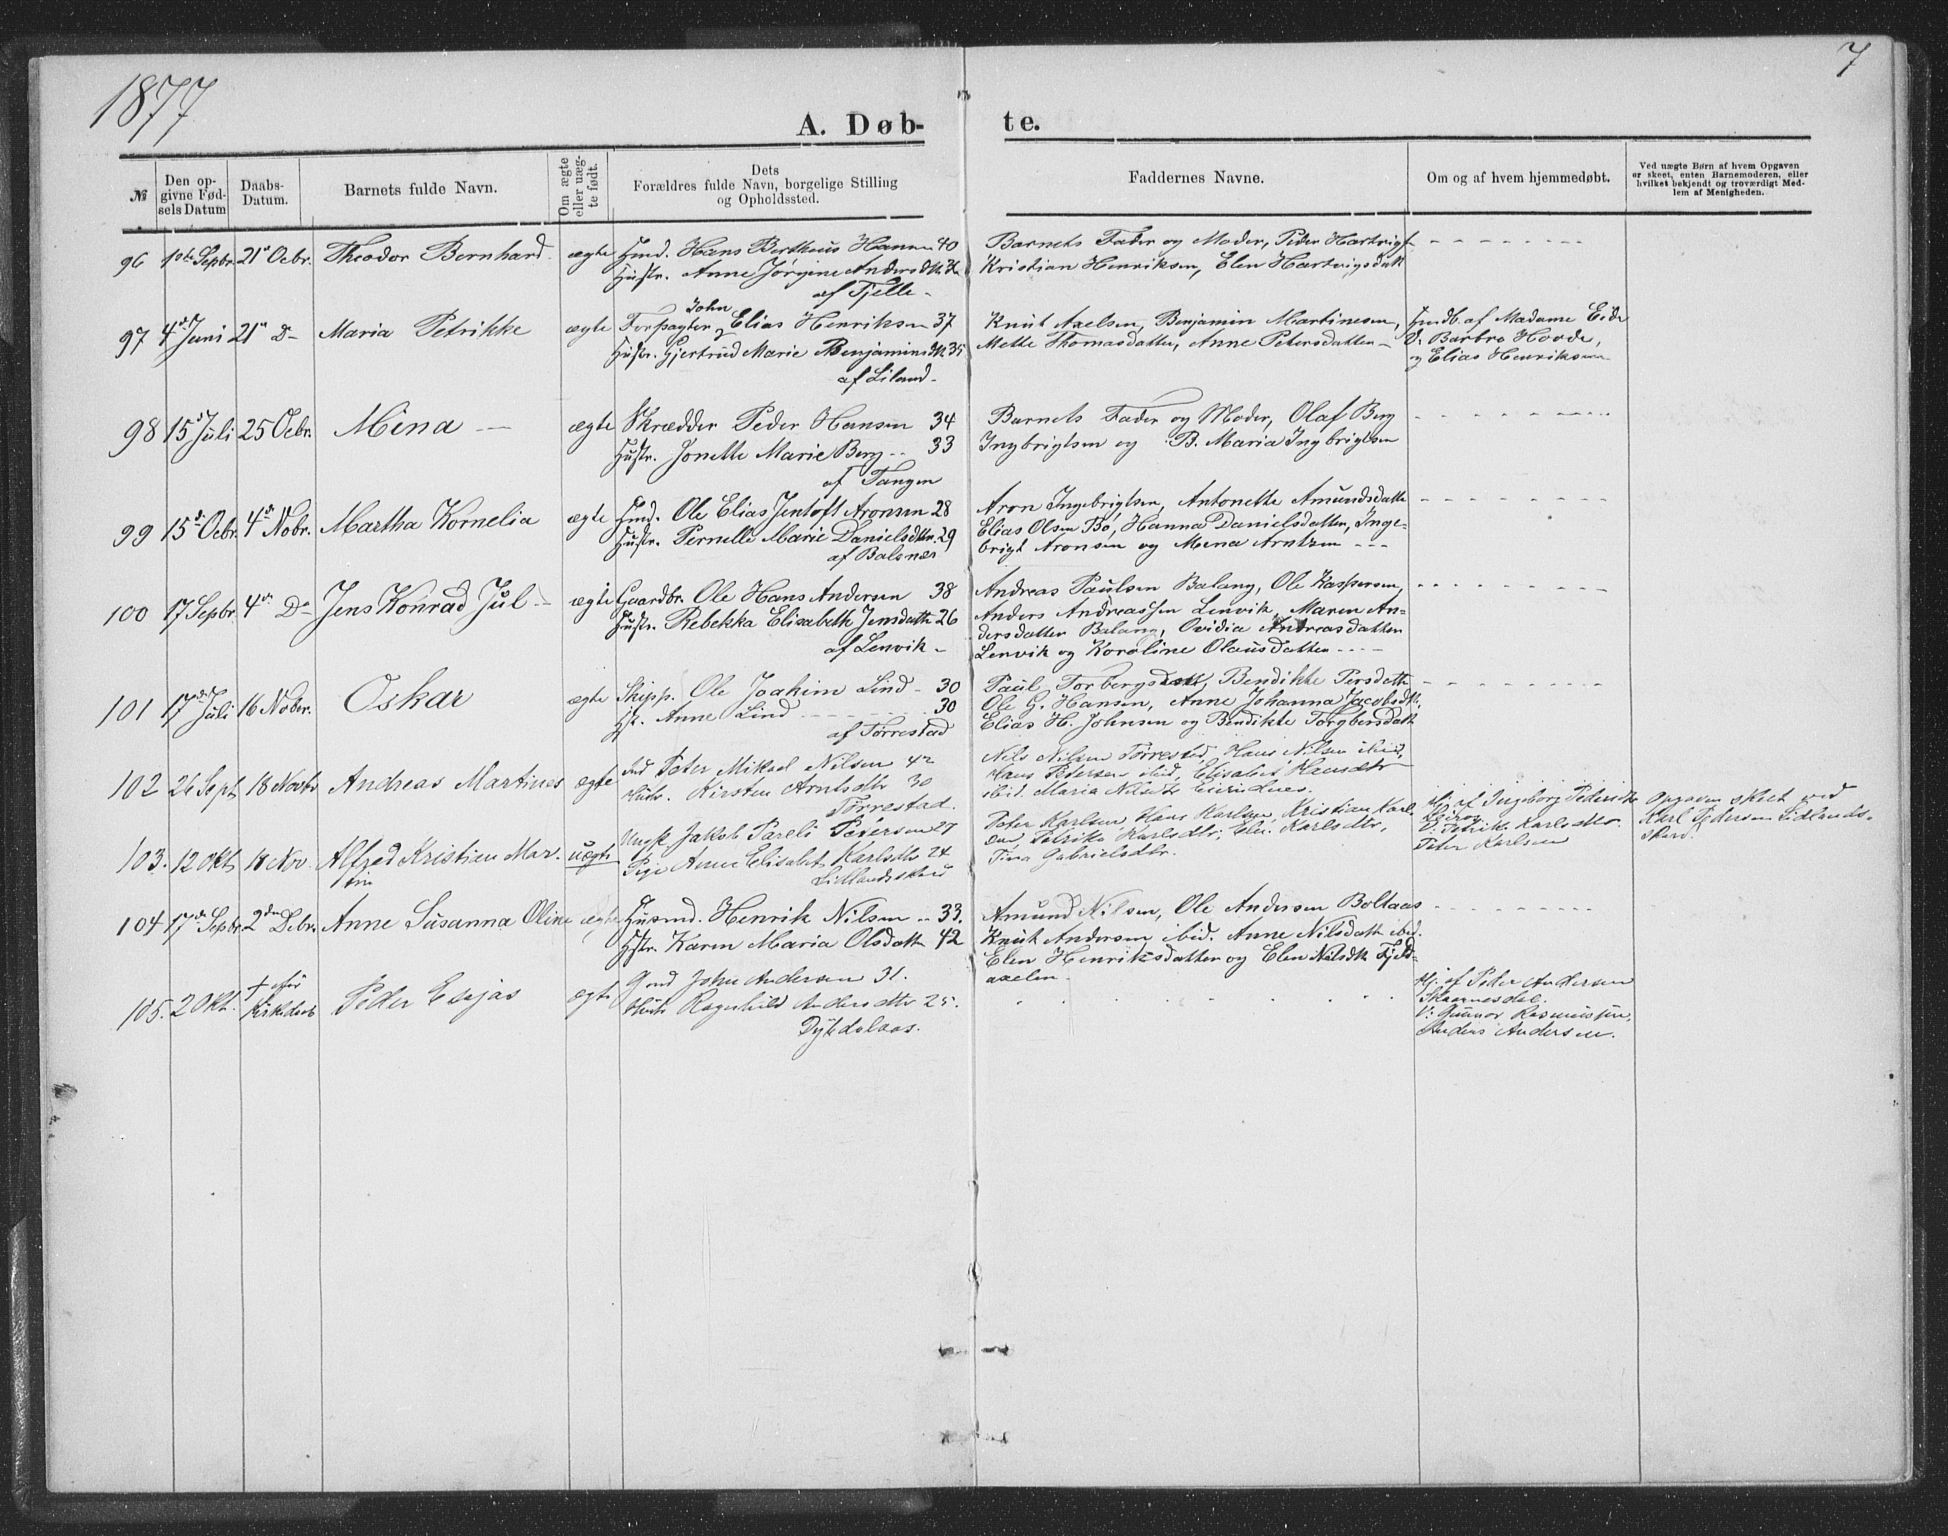 1877
7
A. Døb-
te.
№
Den op-
givne Fød-
sels Datum
Daabs-
Datum.
Barnets fulde Navn.
Om ægte
eller uæg-
te født.
Dets
Forældres fulde Navn, borgelige Stilling
og Opholdssted.
Faddernes Navne.
Om og af hvem hjemmedøbt.
Ved uægte Børn af hvem Opgaven
er skeet, enten Barnemoderen, eller
hvilket bekjendt og troværdigt Med-
lem af Menigheden.
96 1ste Sepbr. 21de Ocbr. Theodor Bernhard ægte
Hans Bertheus Hansen 40
Hustr. Anne Jørgine Andersd
af Fjelle
Barnets Fader og Moder, Peder Hartvigs
Kristian Henriksen, Elen Hartvigsdatt
97 4de Juni 21 Do Maria Petrikke ægte
John
Forpagter Elias Henriksen 37
Hustr. Gjertrud Marie Benjaminsdtr. 35
af Liland
Knut Axelsen, Benjamin Martinesen,
Mette Thomasdatter, Anne Petersdatter
Hmdb. af Madame Eide
V. Barbro Hovde,
og Elias Henriksen
98 15 Juli 25 Ocbr. Mina ægte
Skrædder Peder Hansen 34
Hustr. Jonette Marie Berg 33
af Tangen
Barnets Fader og Moder, Olaf Berg
Ingbrigtsen og B. Maria Ingbrigtsen
99 15de Ocbr. 4de Nobr. Martha Kornelia ægte
Ole Elias Jentoft Aronsen 28
Hustr. Pernelle Marie Danielsdttr. 29
af Balsnes
Aron Ingebrigtsen, Antonette Amundsdatte
Elias Olsen Bö, Hanna Danielsdatter, Inge-
brigt Aronsen og Mina Arntzen
100 17 Sepbr. 4de Do Jens Konrad Jul ægte
Gaardbr. Ole Hans Andersen 38
Hustr. Rebekka Elisabeth Jensdatt 26
af Lenvik
Andreas Paulsen Balang, Ole Kaspersen,
Anders Andreassen Lenvik, Maren An-
dersdatter Balang, Ovidia Andreasdatter
Lenvik og Karoline Olausdatter
101 17de Juli 16 Nobr. Oskar ægte
Skipp. Ole Joakim Lind 30
Hst. Anne Lind 30
af Tørrestad
Paul Torbergs Bendikte Persdatt
Ole G. Hansen, Anne Johanna Jacobsdtr.
Elias H. Johnsen og Bendikte Torgbersdatt
102 26 Sept 18 Novbr Andreas Martines ægte
Peter Mikael Nilsen 42
Hustr. Kirsten Arntsdtr 30
Tørrestad.
Nils Nilsen Tørrestad, Hans Nilsen ibid,
Hans Petersen ibid, Elisabet Hansdtr
ibid. Maria
103. 12 Okt 18 Nov. Alfred Kristian Mar-
tin
uægte
Ungk Jakob Pareli Pedersen 27
Pige Anne Elisabet Karlsdtr 24
Lidlandsskard
Peter Karlsen, Hans Karlsen, Kristian Karl
sen Petrikke Karlsdtr, Karlsdtr,
Tina Gabrielsdtr.
Hj. af Ingeborg Pedersdtr
V: Petrik. Karlsdtr.
Peter Karlsen
Opgaven skeet ved
Karl Pedersen Lidlands-
skard.
104 17de Sepbr. 2den Debr. Anne Susanna Oline ægte
Husmd. Henrik Nilsen 33.
Hstr. Karen Maria Olsdatt 42
Amund Nilsen, Ole Andersen Boltaas
Knut Andersen ibid. Anne Nilsdatt ibid.
Elen Henriksdatter og Elen Nilsdtr Fjeld-
axelen.
105. 2 Okt. † før
Kirkedaab
Peder Esajas ægte
Gmd John Andersen 31.
Hustr Ragnhild Andersdtr 25.
Dybdalaas.
Hj. af Peder Andersen
Skaanesdal.
V: Gunnar Rasmussen,
Anders Andersen.